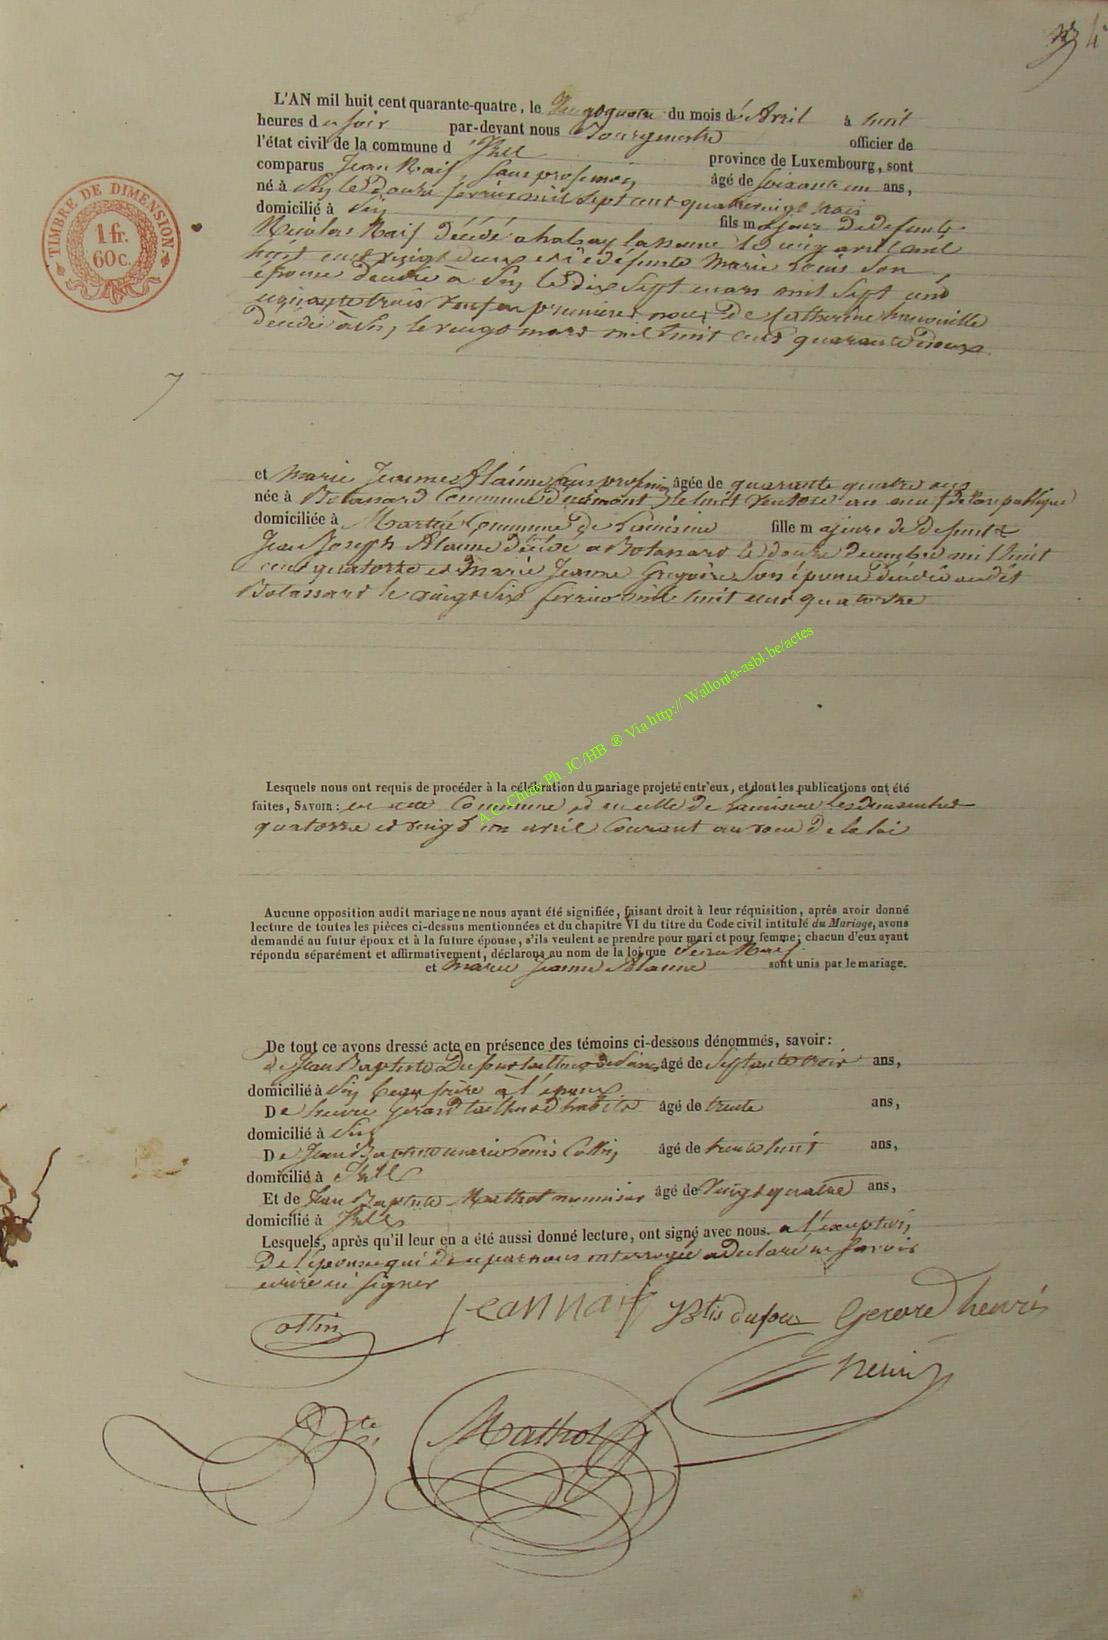 4
TIMBRE DE DIMENSION
1 fr.
60 c.
L'AN mil huit cent quarante-quatre, le vingtquatre du mois d'Avril à huit
heures du soir par-devant nous Bourgmestre officier de
l'état civil de la commune d' province de Luxembourg, sont
comparus Jean Naif, sans profession âgé de soixante un ans,
né à le douze fevrier mil sept cent quatrevingt trois
domicilié à fils majeur de defunts
Nicolas Naif décédé a le cinq avril mil
huit cent vingt deux et de défunte Marie Louis son
épouse décédée à le dix sept mars mil sept cent
trois veuf en premieres noces de Catherine
décédée à le vingt mars mil huit cent quarante deux.
7
et Marie Jeanne Alaime sans profession âgée de quarante quatre ans
née à Botassart Commune d' le huit Ventose an neuf de la republique
domiciliée à Commune de fille majeure de defunts
Jean Joseph Alaime décédé a Botassart le douze decembre mil huit
cent quatorze et Marie Jeanne Gregoire son épouse décédée audit
Botassart le vingt six fevrier mil huit cent quatorze
A.C. Chiny Ph JC/HB ® Via http:// Wallonia-asbl.be/actes
Lesquels nous ont requis de procéder à la célébration du mariage projeté entr'eux, et dont les publications ont été
faites, SAVOIR: en cette Commune et en celle de les dimanches
quatorze et vingt un avril courant au voeu de la loi
Aucune opposition audit mariage ne nous ayant été signifiée, faisant droit à leur réquisition, après avoir donné
lecture de toutes les pièces ci-dessus mentionnées et du chapitre VI du titre du Code civil intitulé du Mariage, avons
demandé au futur époux et à la future épouse, s'ils veulent se prendre pour mari et pour femme; chacun d'eux ayant
répondu séparément et affirmativement, déclarons au nom de la loi que Jean Naif
et Marie Jeanne Alaime sont unis par le mariage.
De tout ce avons dressé acte en présence des témoins ci-dessous dénommés, savoir:
de Jean Baptiste Dufour âgé de septante trois ans,
domicilié à beau frère à l'époux
De henri Gerard tailleur d'habits âgé de trente ans,
domicilié à
De Jean Baptiste Marie Louis Collin âgé de trente huit ans,
domicilié à
Et de Jean Baptiste Mathot menuisier âgé de Vingt quatre ans,
domicilié à
Lesquels, après qu'il leur en a été aussi donné lecture, ont signé avec nous. a l'exception
De l'épouse qui de ce par nous interrogée a declaré ne savoir
ecrire ni signer
Collin jean naif dufour Gerard henri
henri
Mathot